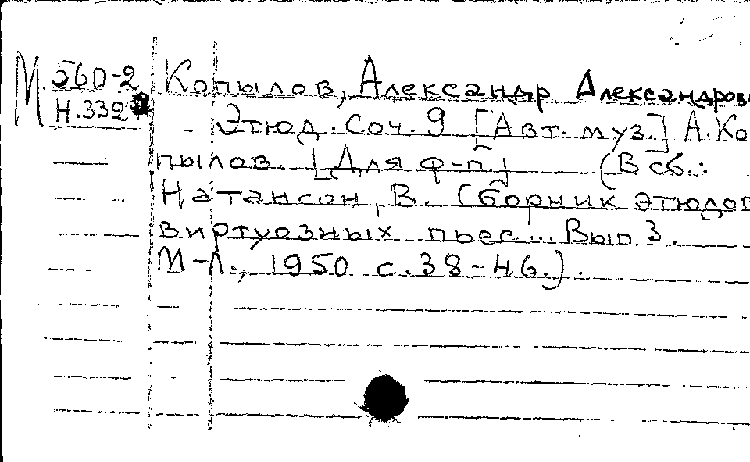 М 560-2 Копылов, Александр Александрови
Н.332 Этюд. Соч. 9 [Авт. муз.] А. Ко-
пылов. [Для ф-п] (В сб.:
Натансон, В. Сборник этюдов
виртуозных пьес... Вып 3.
М-Л., 1950 с. 38-46.).